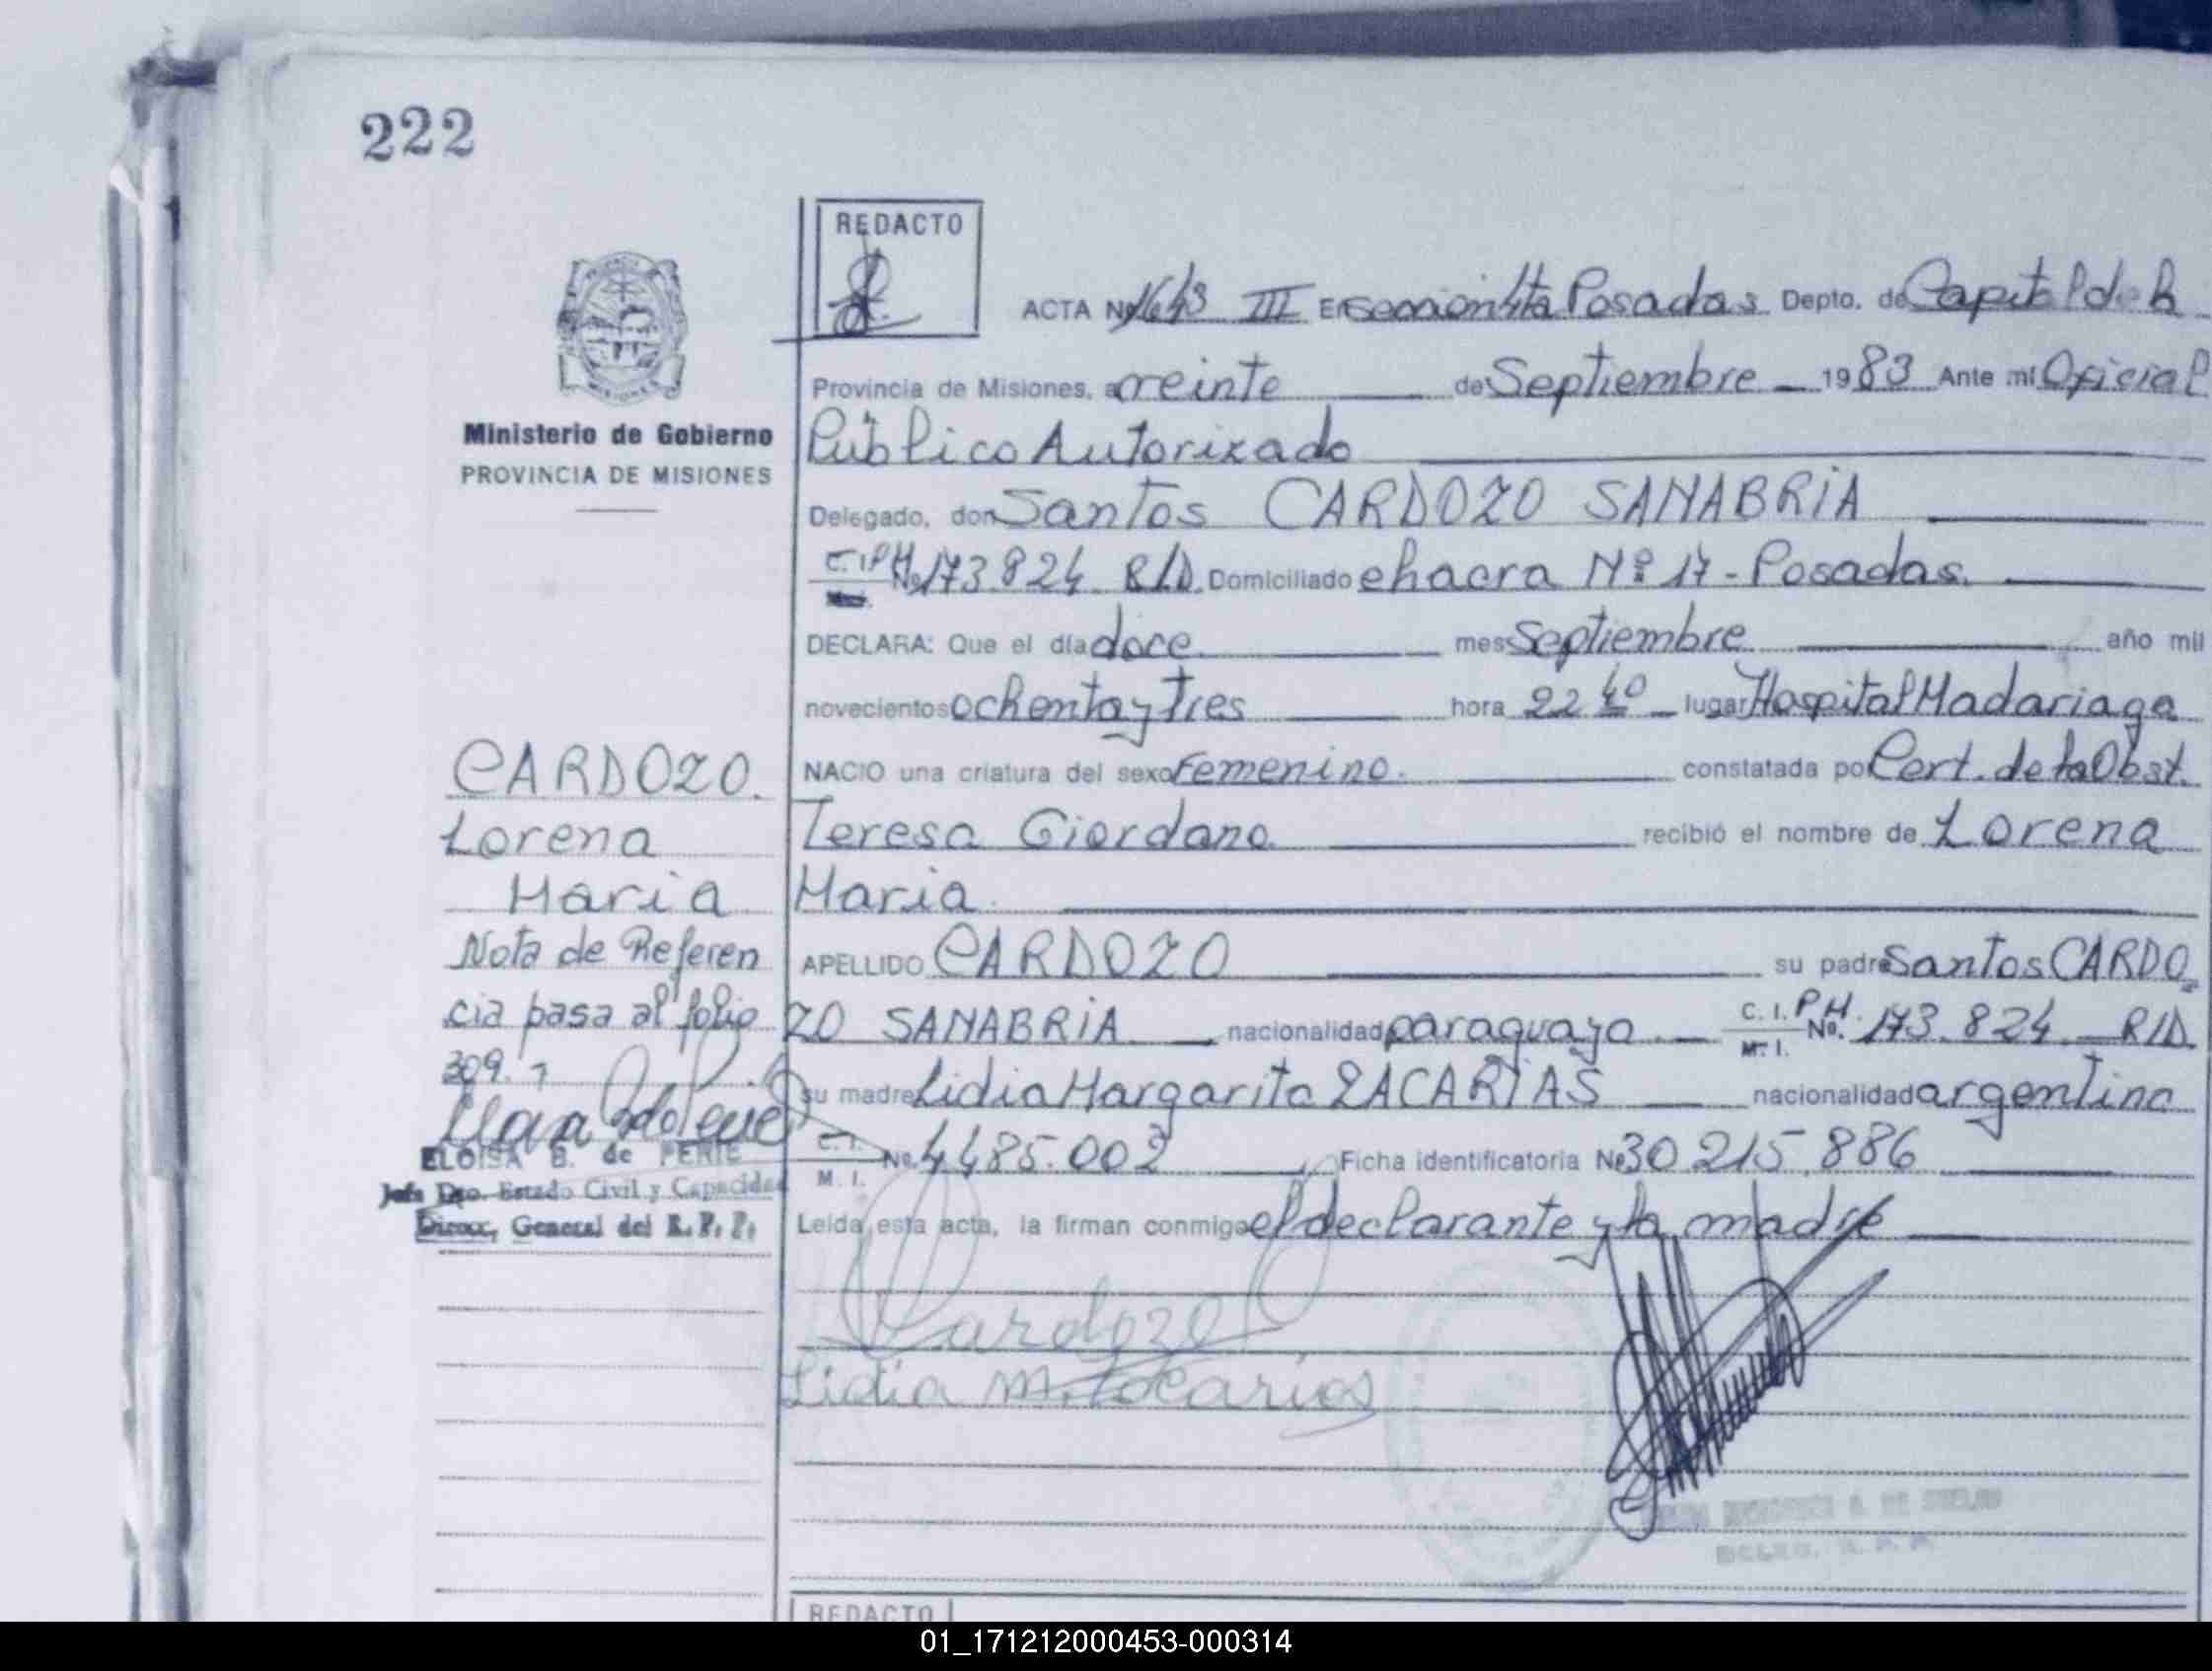 222
REDACTO
ACTA Nº 1643 III En sección 4ta Posadas Depto. de Capital de la
Provincia de Misiones, a veinte de Septiembre 1983 Ante mí Oficial
Ministerio de Gobierno
PROVINCIA DE MISIONES
Público Autorizado
Delegado, don Santos CARDOZO SANABRIA
C. I. P.M. No. 173.824 R/D. Domiciliado chacra Nº 17 - Posadas.
DECLARA: Que el día doce mes Septiembre año mil
novecientos ochenta y Tres hora 22 40 lugar Hospital Madariaga
NACIO una criatura del sexo Femenino. constatada por Cert. de la Obst.
Teresa Giordano recibió el nombre de Lorena
Maria
APELLIDO CARDOZO su padre Santos CARDO
ZO SANABRIA nacionalidad paraguaya C. I. P.M. No. 173.824 R/D.
M. I.
su madre Lidia Margarita ZACARIAS nacionalidad argentina
C. I.
M. I. No. 4485.002 Ficha identificatoria Nº 30 215.886
Leída esta acta, la firman conmigo el declarante y la madre
Cardozo
Lidia M. Zacarias
CARDOZO.
Lorena
Maria
Nota de Referen
cia pasa al folio
309.
ELOISA B. de PERIE
Jefa Dto. Estado Civil y Capacidad
Direcc, General del R. P. P.
REDACTO
01_171212000453-000314